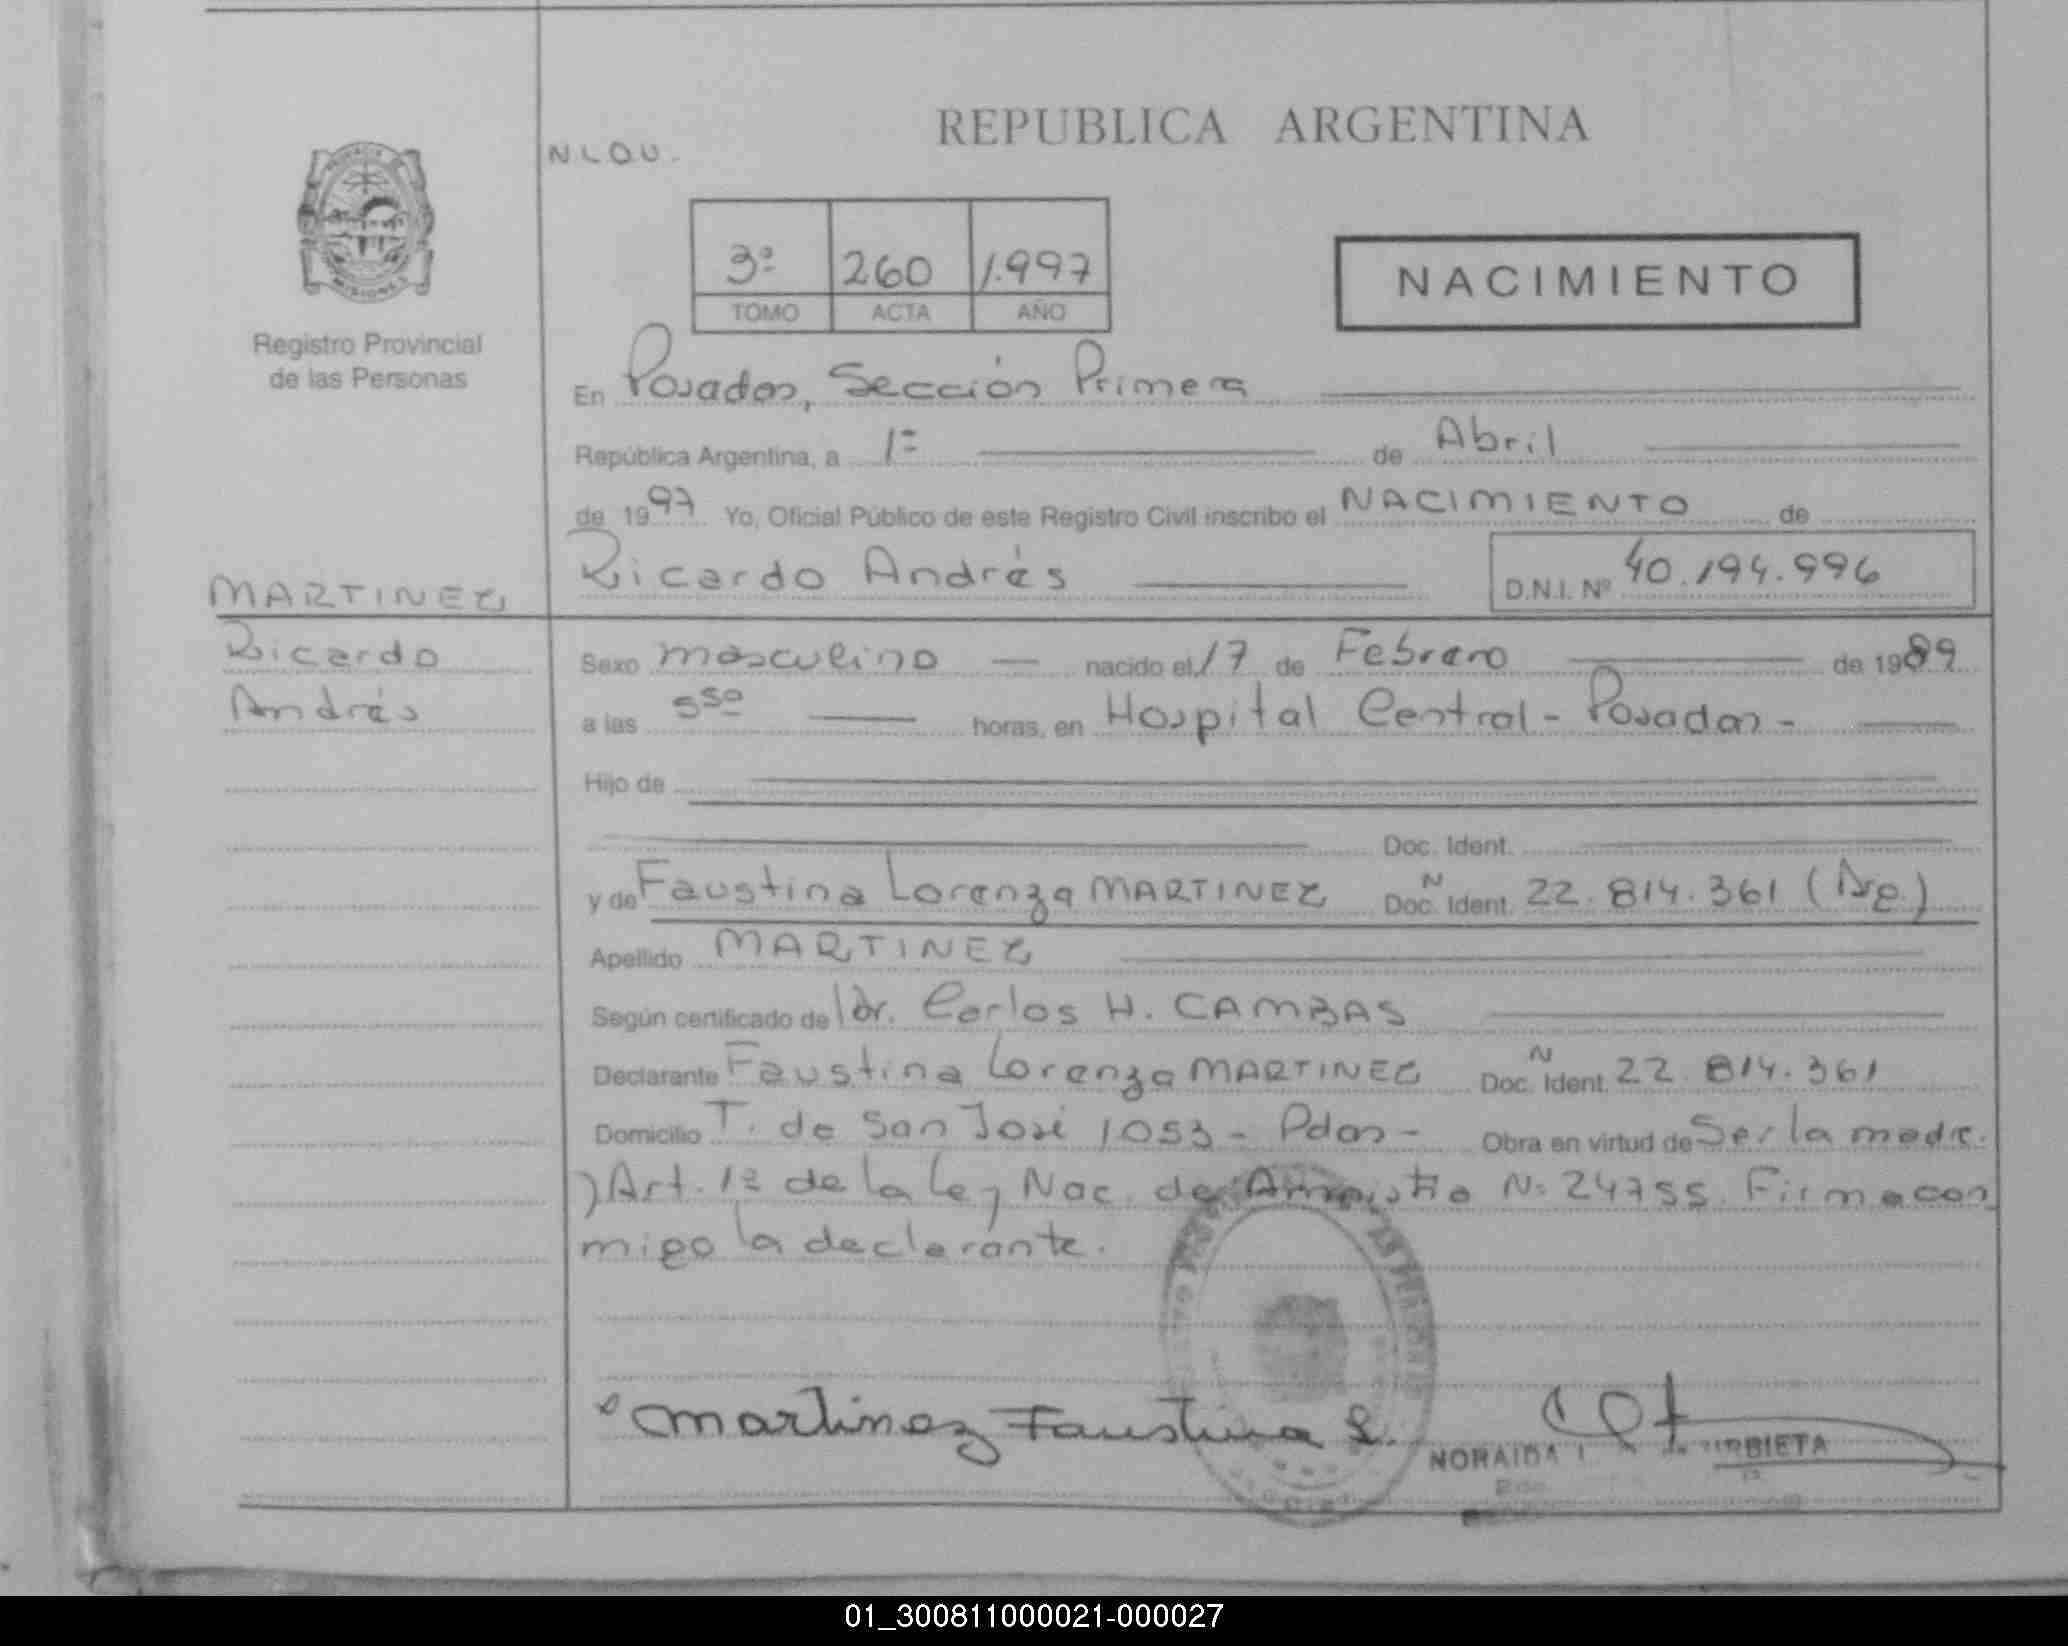 REPUBLICA ARGENTINA
PROVINCIA DE
MISIONES
Registro Provincial
de las Personas
3º 260 1.997
TOMO ACTA AÑO
NACIMIENTO
En Posadas, Sección Primera
República Argentina, a 1º de Abril
de 1997 Yo, Oficial Público de este Registro Civil inscribo el NACIMIENTO de
Ricardo Andrés D.N.I. Nº 40.194.996
MARTINEZ
Ricardo
Andrés
Sexo masculino nacido el 17 de Febrero de 1989
a las 5 50 horas, en Hospital Central - Posadas -
Hijo de
Doc. Ident.
y de Faustina Lorenza MARTINEZ Doc. N Ident. 22.814.361 (Arg.)
Apellido MARTINEZ
Según certificado de Dr. Carlos H. CAMBAS
Declarante Faustina Lorenza MARTINEZ Doc. N Ident. 22.814.361
Domicilio T. de San José 1053 - Pdas - Obra en virtud de Ser la madre.
) Art. 1º de la Ley Nac. de Amnistía Nº 24755. Firma con
migo la declarante.
Martinez Faustina L.
NORAIDA I. URBIETA
01_300811000021-000027